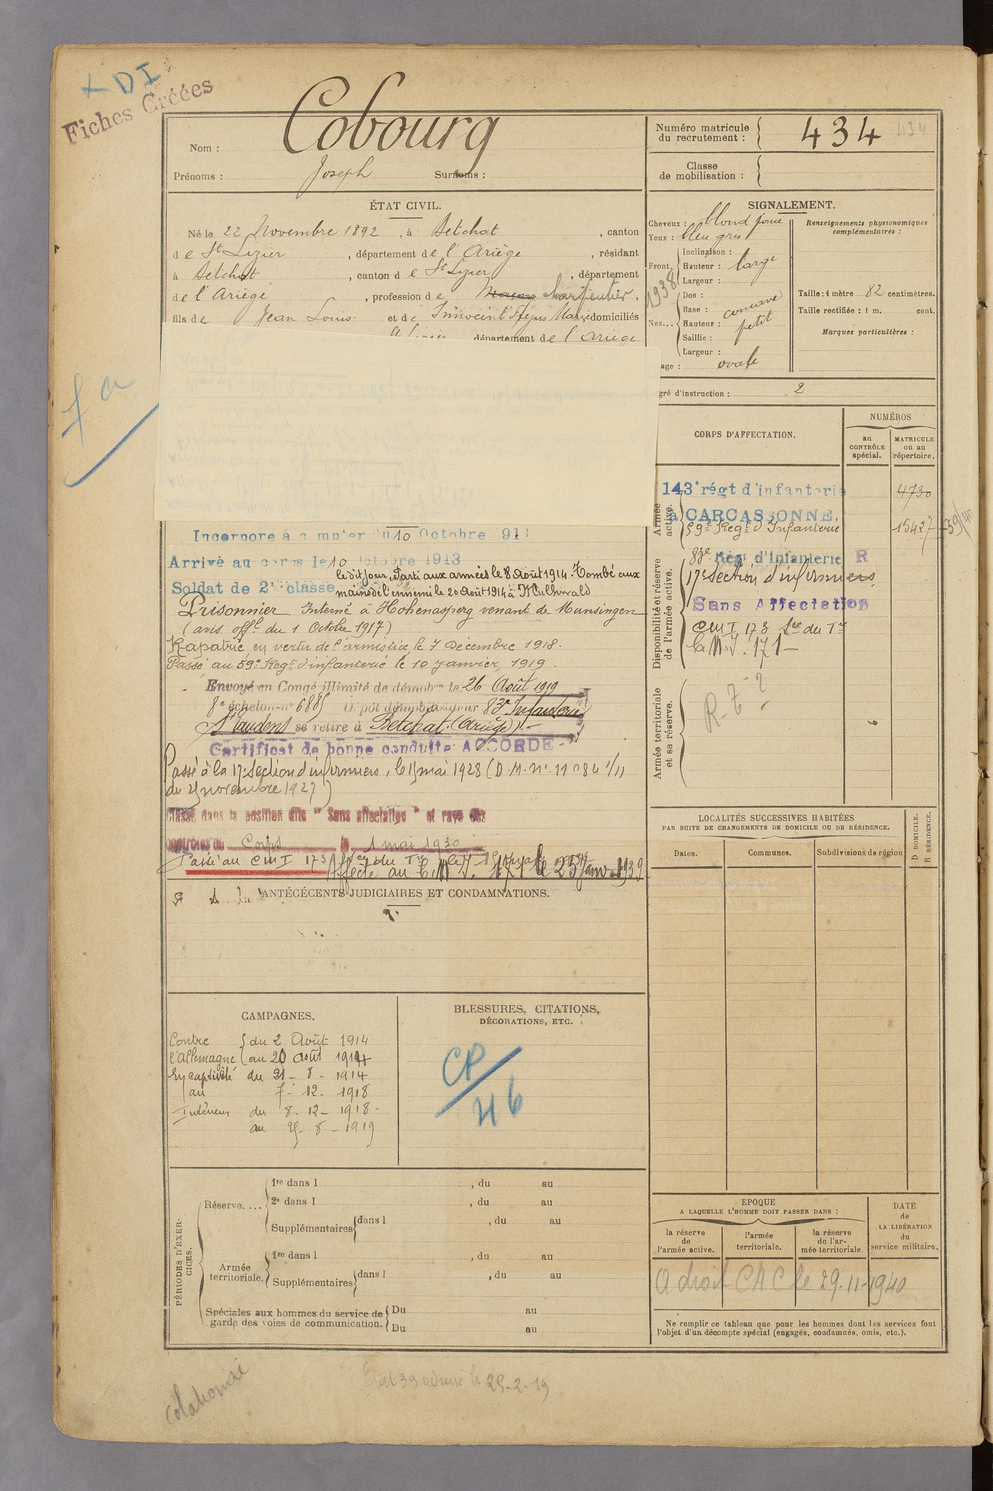 LDI
Fiches Créées
Nom : Cobourg
Prénoms : Joseph Surnoms :
Numéro matricule du recrutement : 434 434
Classe de mobilisation :
ÉTAT CIVIL.
Né le 22 Novembre 1892, à Betchat, canton
de St Lizier, département de l'Ariège, résidant
à Betchat, canton de St Lizier, département
de l'Ariège, profession de charpentier,
fils de Jean Louis et de domiciliés
département de l'Ariège
SIGNALEMENT.
Cheveux : blond foncé
Yeux : bleu gris
Front
Inclinaison :
Hauteur : large
Largeur :
1938
Nez
Dos :
Base : concave
Hauteur : petit
Saillie :
Largeur :
age : ovale
Renseignements physionomiques complémentaires :
Taille : 1 mètre 82 centimètres.
Taille rectifiée : 1 m. cent.
Marques particulières :
gré d'instruction : 2
CORPS D'AFFECTATION.
NUMÉROS
au CONTRÔLE spécial.
MATRICULE ou au répertoire.
Armée active.
143e régt d'infanterie 4730
à CARCASSONNE,
59e Regt d'Infanterie 15427
Disponibilité et réserve de l'armée active.
83e Régt d'Infanterie R
17e Section d'infirmiers
Sans Affectation
CMI 173
171
Armée territoriale et sa réserve.
R-7-?
Incorporé à compter du 10 Octobre 913
Arrivé au corps le 10 octobre 1913
Soldat de 2e classe ledit jour. Parti aux armées le 8 Août 1914. Tombé aux
mains de l'ennemi le 20 Août 1914 à
Prisonnier Interné à Hohenasperg venant de Munsingen
(avis offel du 1 Octobre 1917)
Rapatrié en vertu de l'armistice le 7 Décembre 1918.
Passé au 59e Regt d'infanterie le 10 janvier 1919.
Envoyé en Congé illimité de démob le 26 Août 1919
échelon no 6885 Dépôt démobilisateur 83e Infanterie
St Gaudens se retire à Betchat (Ariège)
Certificat de bonne conduite ACCORDÉ
Passé à la 17e Section d'infirmiers, le 1 mai 1928 (D.M. no 11084 1/11
du 25 novembre 1927)
Classé dans la position dite "Sans affectation" et rayé des
contrôles du Corps le 1 mai 1930
Passé au CMI 173
Affecté au 171 le 25 janv 1939
ANTÉCÉCENTS JUDICIAIRES ET CONDAMNATIONS.
LOCALITÉS SUCCESSIVES HABITÉES
PAR SUITE DE CHANGEMENTS DE DOMICILE OU DE RÉSIDENCE.
Dates.
Communes.
Subdivisions de région
D DOMICILE.
R RÉSIDENCE.
CAMPAGNES.
Contre du 2 Août 1914
l'Allemagne au 20 août 1914
En captivité du 21 - 8 - 1914
au 7 - 12 - 1918
Intérieur du 8 - 12 - 1918
au 25 - 8 - 1919
BLESSURES, CITATIONS,
DÉCORATIONS, ETC.
CP/46
PÉRIODES D'EXERCICES.
Réserve....
1re dans l , du au
2e dans l , du au
Supplémentaires dans l , du au
Armée territoriale.
1re dans l , du au
Supplémentaires dans l , du au
Spéciales aux hommes du service de garde des voies de communication.
Du au
Du au
EPOQUE
A LAQUELLE L'HOMME DOIT PASSER DANS :
la réserve de l'armée active.
l'armée territoriale.
la réserve de l'armée territoriale.
DATE de LA LIBÉRATION du service militaire.
a droit CAC le 29-11-1940
Ne remplir ce tableau que pour les hommes dont les services font
l'objet d'un décompte spécial (engagés, condamnés, omis, etc.).